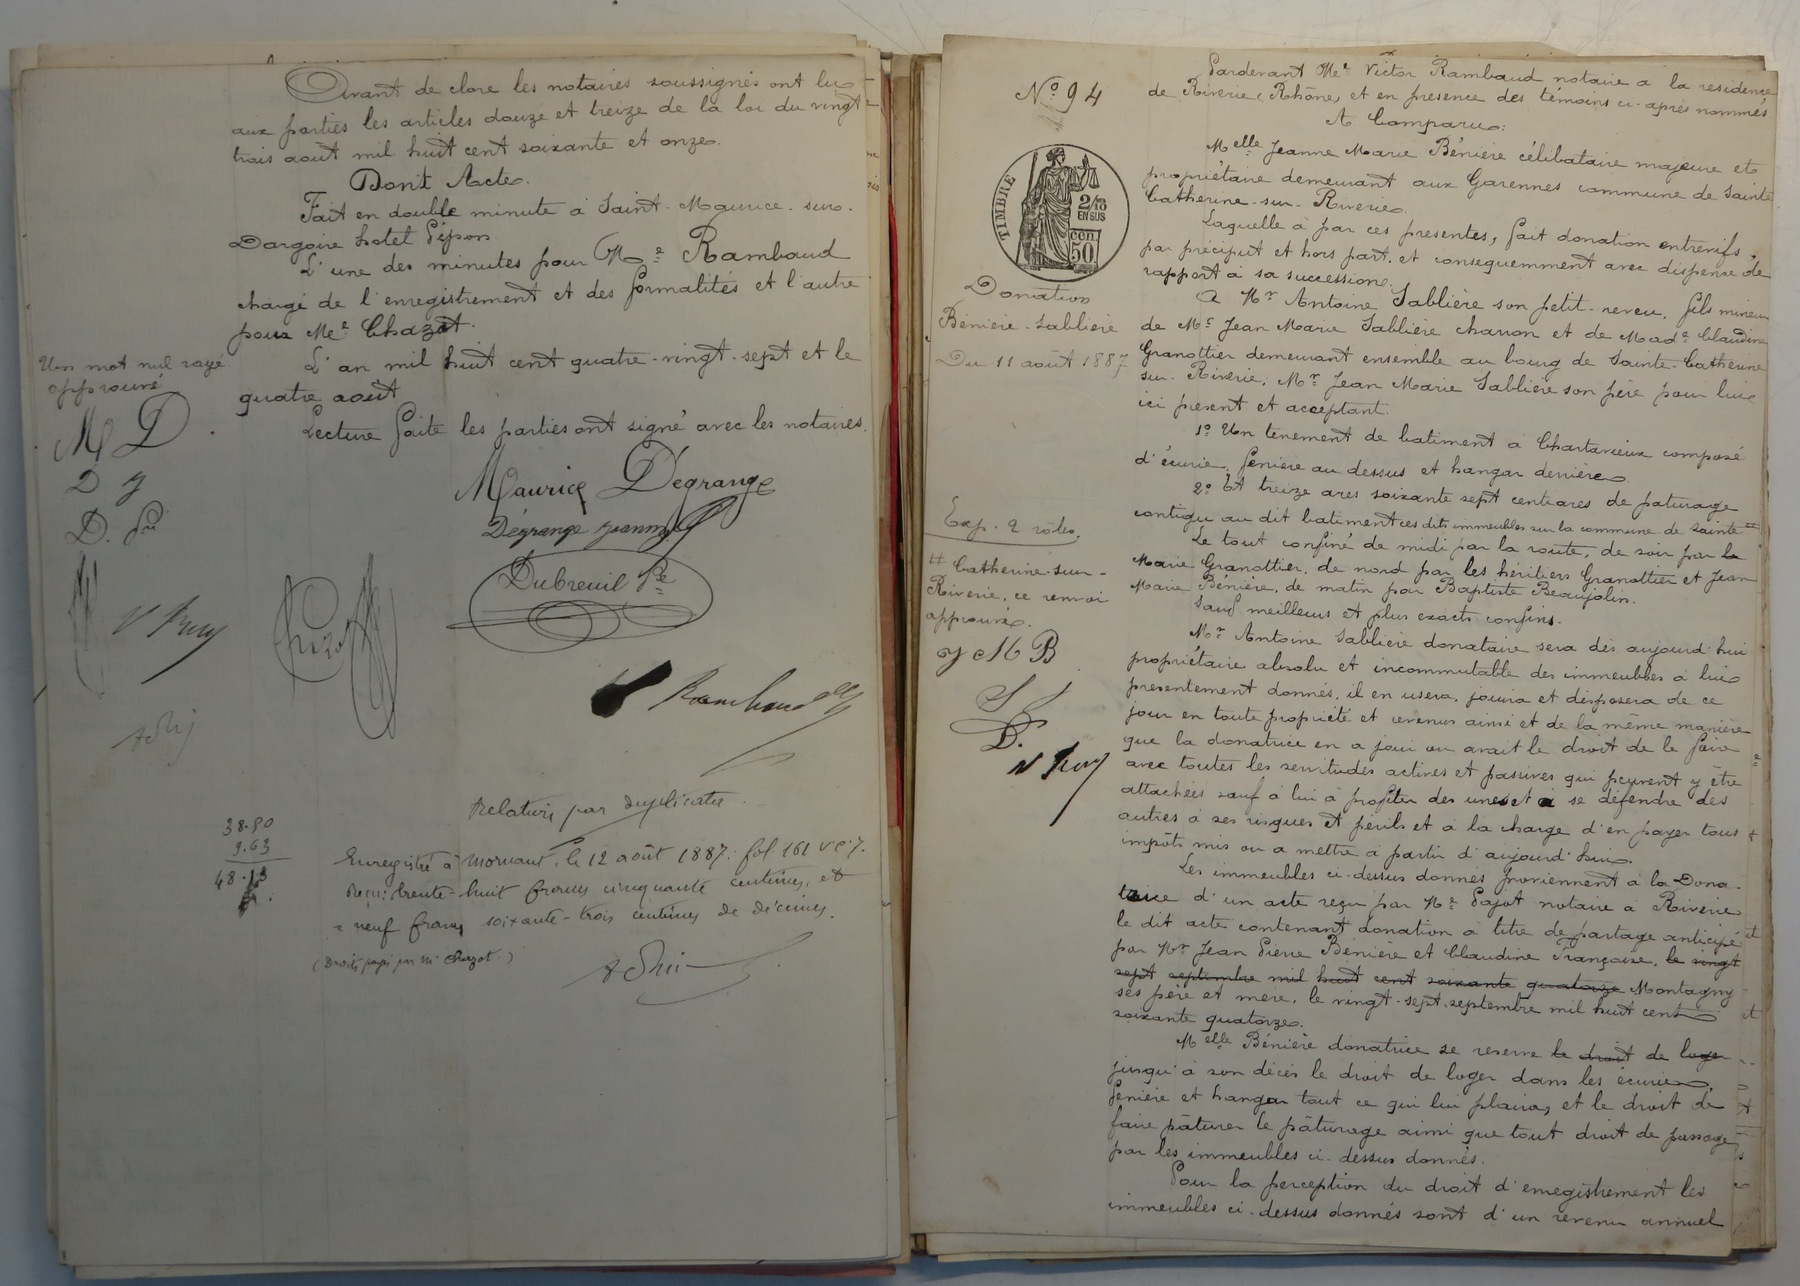 Avant de clore les notaires soussignés ont lu
aux parties les articles douze et treize de la loi du vingt
trois août mil huit cent soixante et onze.
Dont Acte.
Fait en double minute à Saint-Maurice-sur-
Dargoire hotel Pépon
L'une des minutes pour Me Rambaud
chargé de l'enregistrement et des formalités et l'autre
pour Me Chazot.
L'an mil huit cent quatre-vingt-sept et le
quatre août
Lecture faite les parties ont signé avec les notaires.
Un mot nul rayé
approuvé
M D
D J
D. Pre
Maurice Dégrange
Dégrange Jeanne
Dubreuil Pre
V Puy
Chazot
Rambaud
Relation par duplicata.
38.50
9.63
48.13
Enregistré à Mornant, le 12 août 1887. fol. 161 Vo c. 7.
Reçu: trente-huit francs cinquante centimes, et
neuf francs soixante-trois centimes de décimes.
(Droits payés par Me Chazot.)
No 94
TIMBRE
2/10
EN SUS
cen.
50
Donation
Bénière-Sablière
Du 11 août 1887
Exp. 2 rôles.
# Catherine-sur-
Riverie, ce renvoi
approuvé.
J M B
S J
D.
V Puy
Pardevant Me Victor Rambaud notaire a la résidence
de Riverie, (Rhône) et en presence des témoins ci-après nommés
A Comparu:
Melle Jeanne Marie Bénière célibataire majeure et
propriétaire demeurant aux Garennes commune de Sainte
Catherine-sur-Riverie.
Laquelle à par ces presentes, fait donation entrevifs,
par préciput et hors part, et consequemment avec dispense de
rapport à sa succession.
A Mr Antoine Sablière son petit-neveu, fils mineur
de Mr Jean Marie Sablière charron et de Made Claudine
Granottier demeurant ensemble au bourg de Sainte-Catherine
sur-Riverie, Mr Jean Marie Sablière son père pour lui
ici présent et acceptant.
1o Un tenement de batiment a Chartavieux composé
d'écurie, fenière au dessus et hangar derrière
2o Et treize ares soixante sept centiares de paturage
contigu au dit batiment ces dits immeubles sur la commune de Sainte #
Le tout confiné de midi par la route, de soir par la
Marie Granottier, de nord par les héritiers Granottier et Jean
Marie Bénière, de matin par Baptiste Beaujolin.
Sauf meilleurs et plus exacts confins.
Mr Antoine Sablière donataire sera dès aujourd'hui
propriétaire absolu et incommutable des immeubles à lui
presentement donnés, il en usera, jouira et disposera de ce
jour en toute propriété et revenus ainsi et de la même manière
que la donatrice en a joui ou avait le droit de le faire
avec toutes les servitudes actives et passives qui peuvent y être
attachées sauf à lui à profiter des unes et à se défendre des
autres à ses risques et périls et à la charge d'en payer tous
impôts mis ou a mettre à partir d'aujourd'hui.
Les immeubles ci-dessus donnés proviennent à la Dona-
trice d'un acte reçu par Me Pajot notaire à Riverie
le dit acte contenant donation à titre de partage anticipé
par Mr Jean Pierre Bénière et Claudine Françoise, le vingt
sept septembre mil huit cent soixante quatorze Montagny
ses père et mère, le vingt-sept septembre mil huit cent
soixante quatorze.
Melle Bénière donatrice se reserve le droit de loger
jusqu'à son décès le droit de loger dans les écuries,
fenière et hangar tout ce qui lui plaira, et le droit de
faire pâturer le pâturage ainsi que tout droit de passage
par les immeubles ci-dessus donnés.
Pour la perception du droit d'enregistrement les
immeubles ci-dessus donnés sont d'un revenu annuel